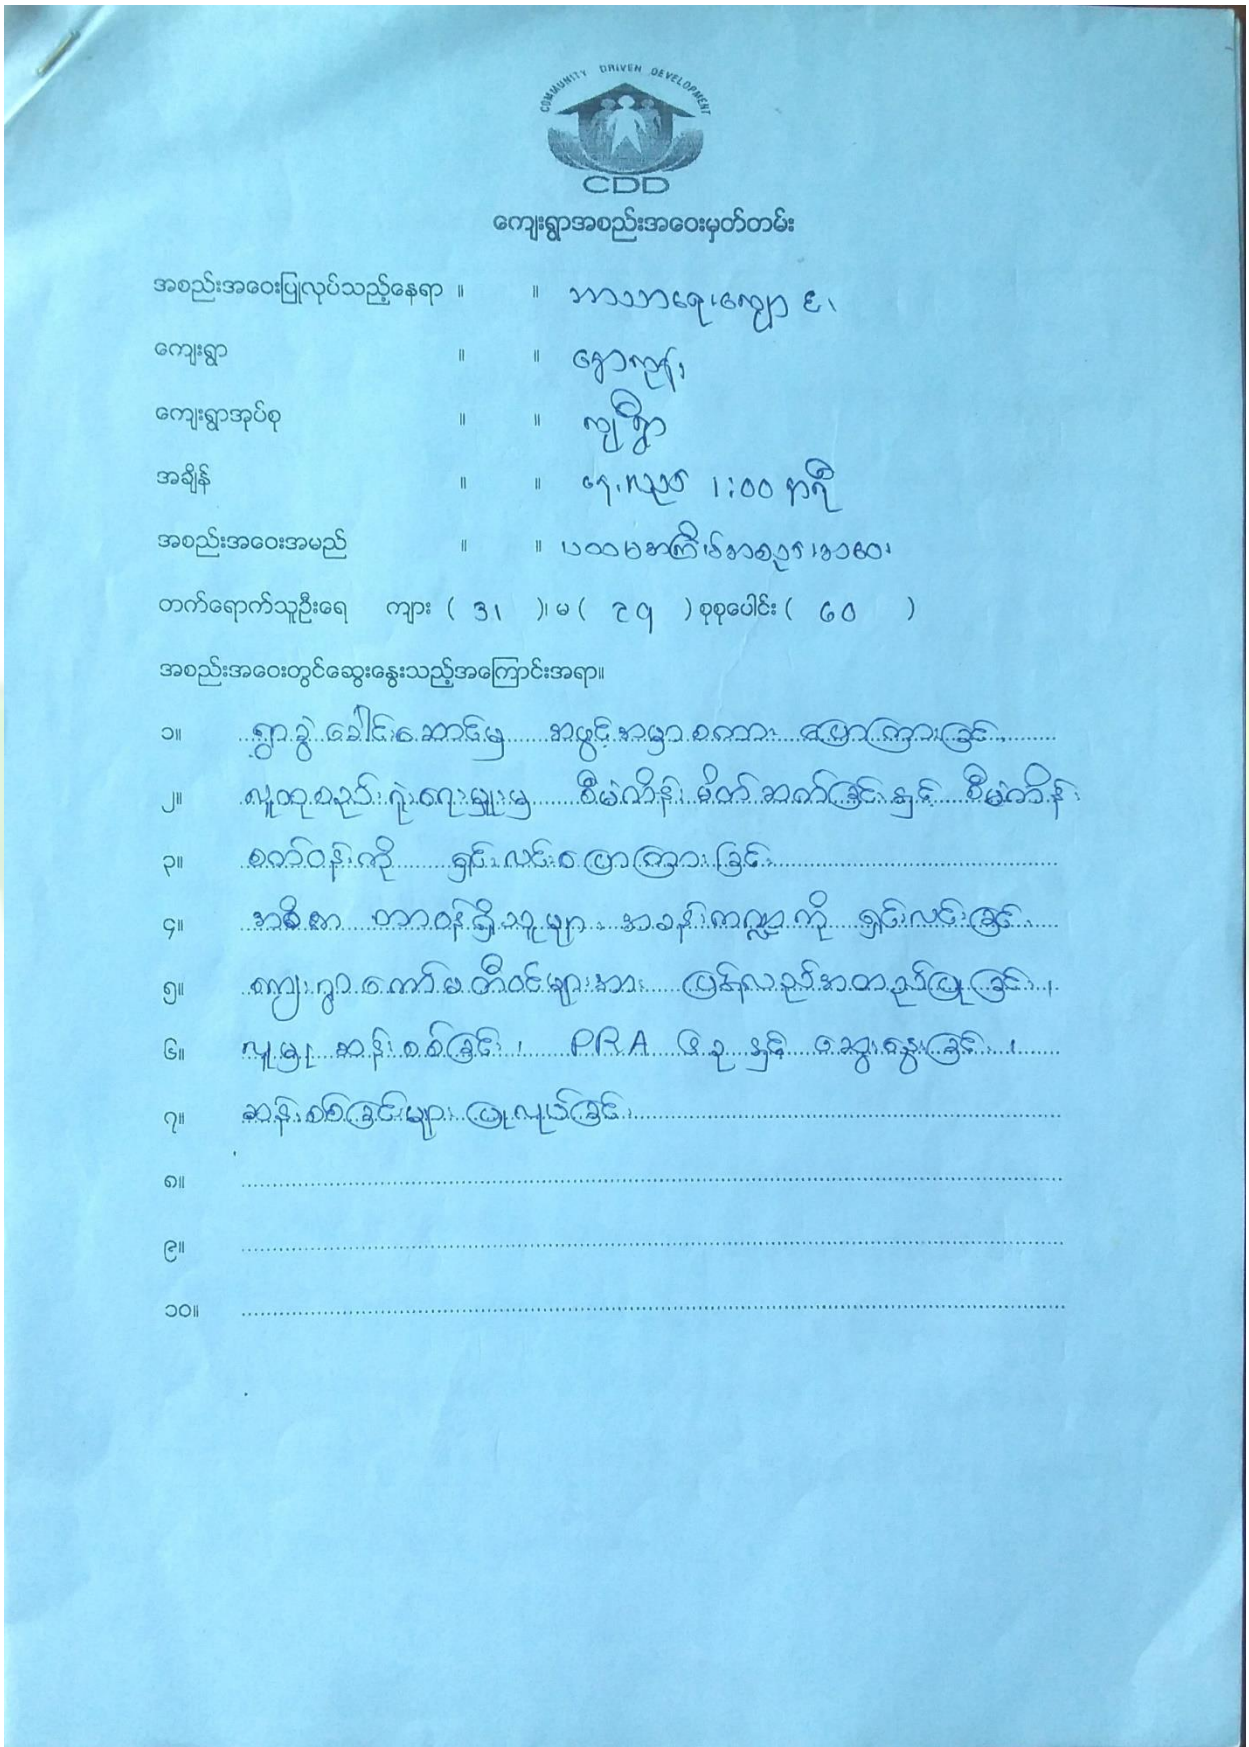 COMMUNITY DRIVEN DEVELOPMENT
CDD
ကျေးရွာအစည်းအဝေးမှတ်တမ်း
အစည်းအဝေးပြုလုပ်သည့်နေရာ ။ ။ ဘာသာရေးကျောင်း
ကျေးရွာ ။ ။ နှောကုန်း
ကျေးရွာအုပ်စု ။ ။ ကျုံရွာ
အချိန် ။ ။ နေ့လည် 1:00 နာရီ
အစည်းအဝေးအမည် ။ ။ ပထမအကြိမ်အစည်းအဝေး
တက်ရောက်သူဦးရေ ကျား ( 31 )၊ မ ( ၂၉ ) စုစုပေါင်း ( 60 )
အစည်းအဝေးတွင်ဆွေးနွေးသည့်အကြောင်းအရာ။
၁။ ရွာခွဲ ခေါင်းဆောင်မှ အဖွင့်အမှာစကား ပြောကြားခြင်း
၂။ လူထုစည်းရုံးရေးမှူးမှ စီမံကိန်း မိတ်ဆက်ခြင်းနှင့် စီမံကိန်း
၃။ စက်ဝန်းကို ရှင်းလင်းပြောကြားခြင်း
၄။ အဓိက တာဝန်ရှိသူများ အခန်းကဏ္ဍကို ရှင်းလင်းခြင်း
၅။ ကျေးရွာကော်မတီဝင်များအား ပြန်လည်အတည်ပြုခြင်း၊
၆။ လူမှုဆန်းစစ်ခြင်း၊ PRA ၆ ခုနှင့် ဆွေးနွေးခြင်း၊
၇။ ဆန်းစစ်ခြင်းများ ပြုလုပ်ခြင်း
၈။
၉။
၁၀။